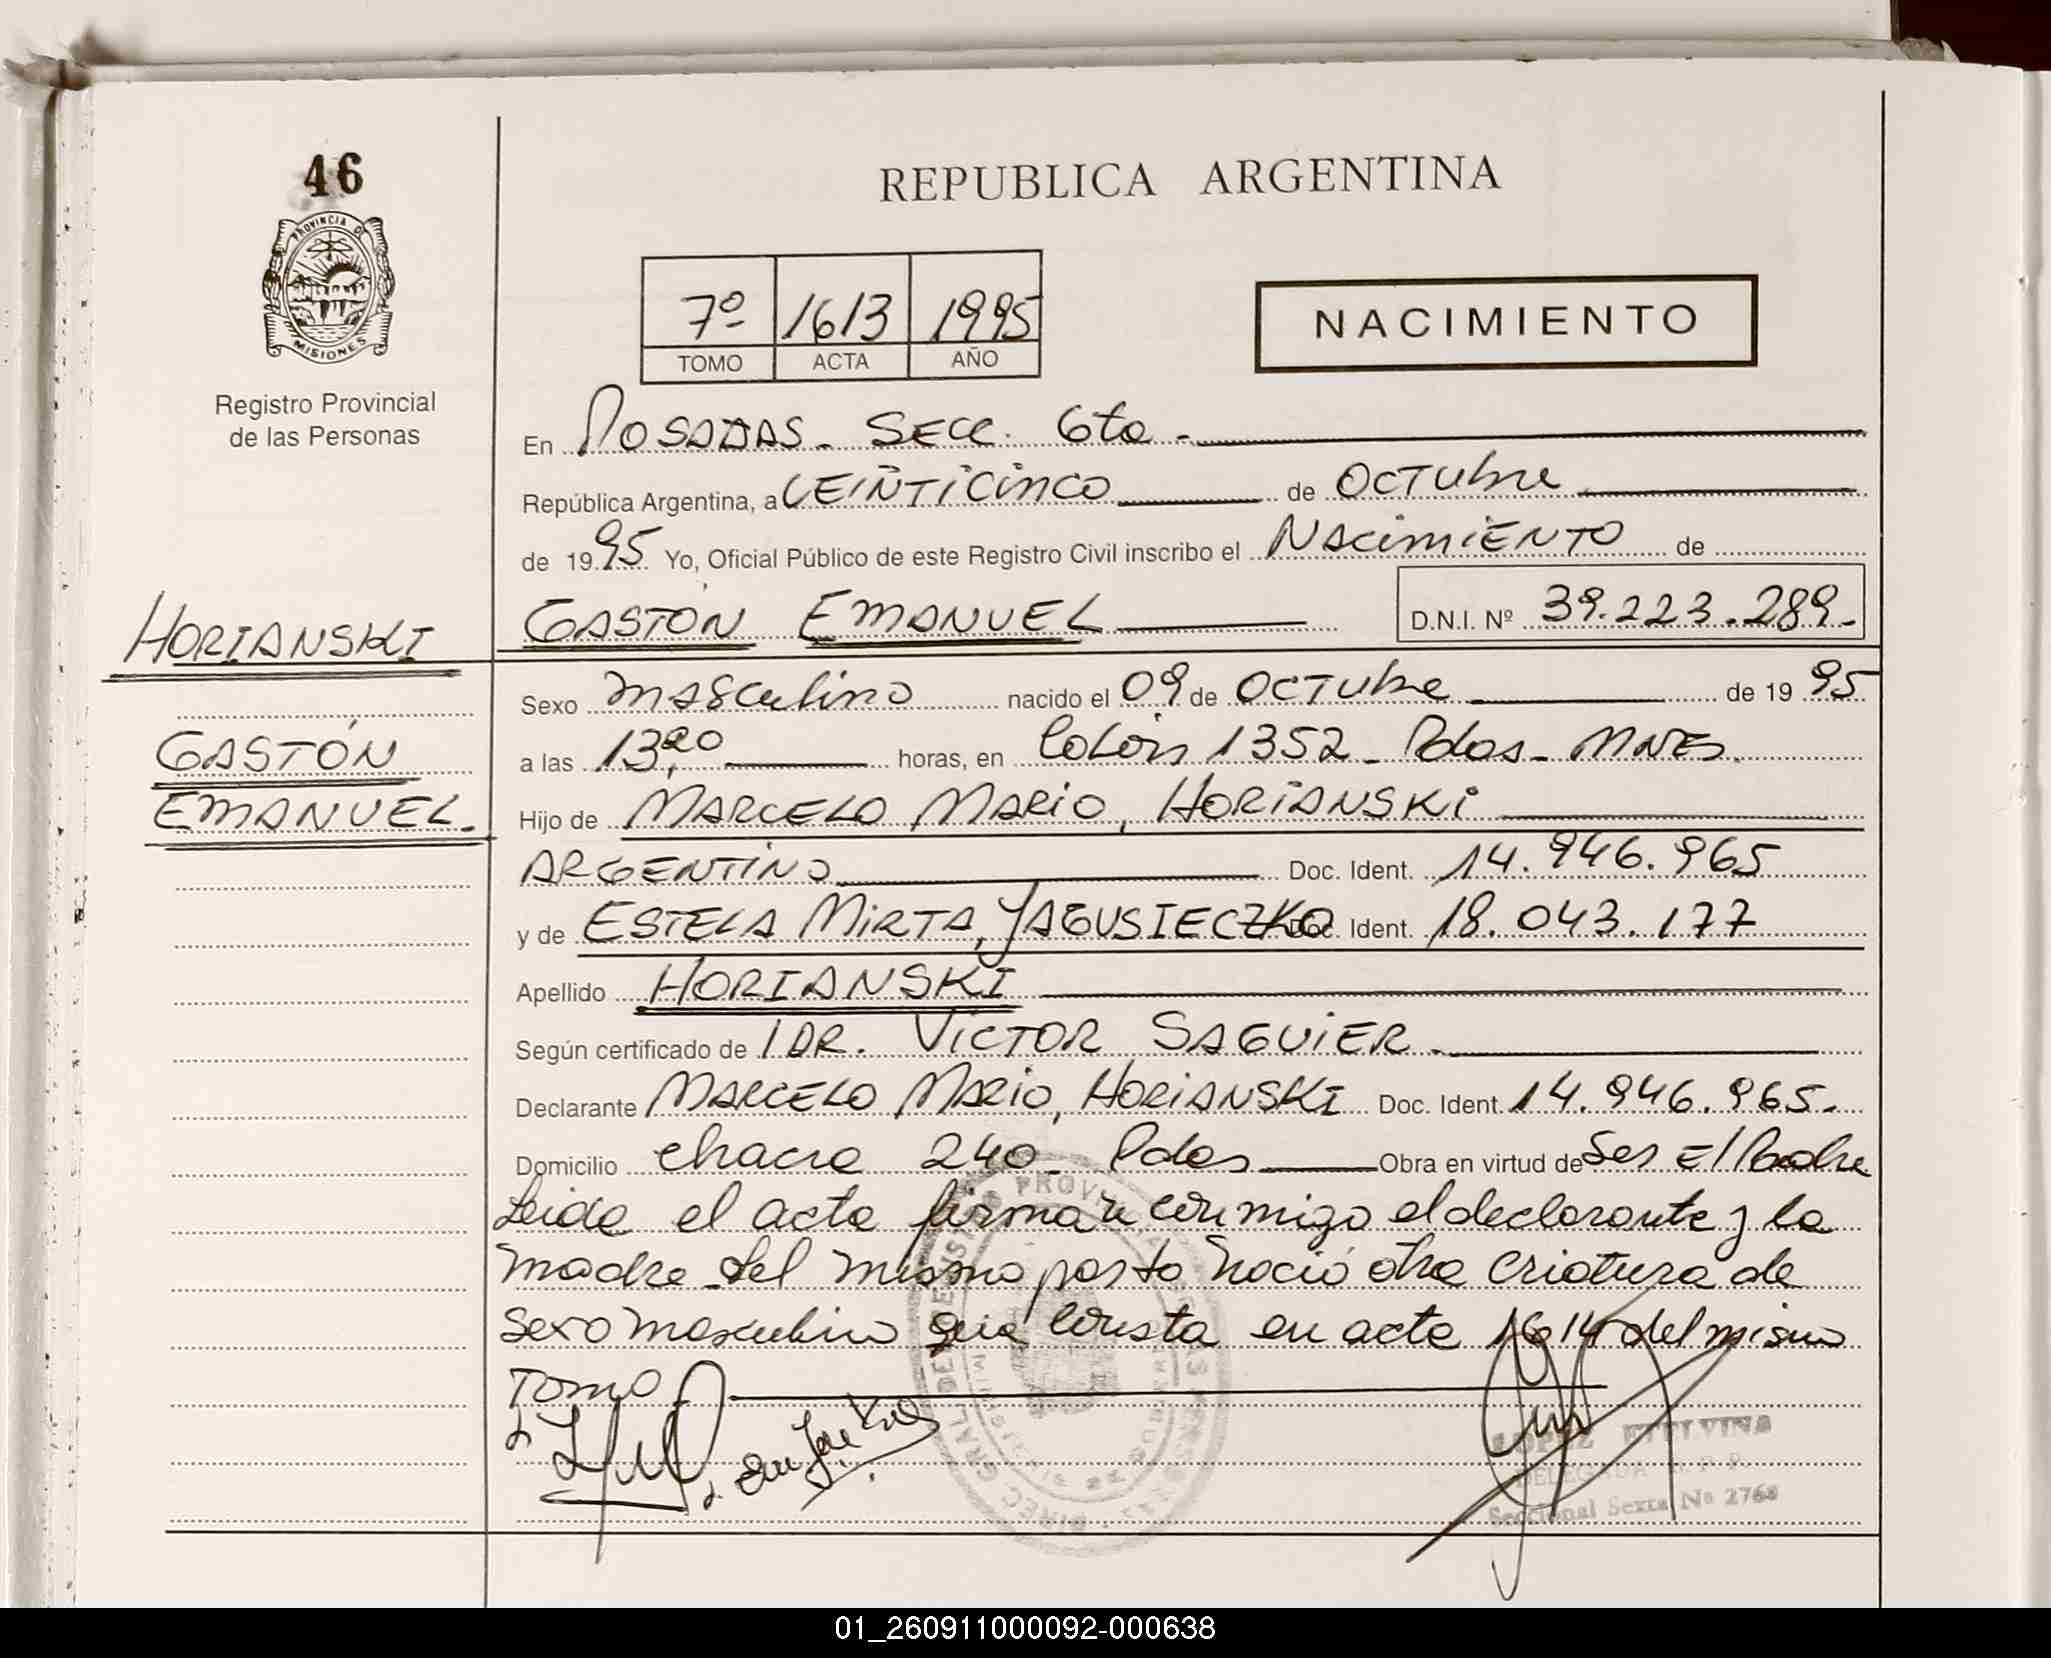 46
PROVINCIA D
MISIONES
Registro Provincial
de las Personas
HORIANSKI
GASTÓN
EMANUEL.
REPUBLICA ARGENTINA
7º 1613 1995
TOMO ACTA AÑO
NACIMIENTO
En POSADAS - SECC. 6ta -
República Argentina, a VEINTICINCO de OCTUbre
de 1995 Yo, Oficial Público de este Registro Civil inscribo el NACIMIENTO de
GASTÓN EMANUEL D.N.I. Nº 39.223.289.-
Sexo masculino nacido el 09 de OCTUbre de 1995
a las 13,20 horas, en Colón 1352 - Pdas - MNES.
Hijo de MARCELO MARIO, HORIANSKI
ARGENTINO Doc. Ident. 14.946.965
y de ESTELA MIRTA, YAGUSIECZKO Doc. Ident. 18.043.177
Apellido HORIANSKI
Según certificado de 1 DR. VICTOR SAGUIER.
Declarante MARCELO MARIO, HORIANSKI Doc. Ident. 14.946.965.
Domicilio chacra 240 - Pdas Obra en virtud de Ser El Padre
Leida el acta firman conmigo el declarante y la
madre del mismo parto nació otra criatura de
sexo masculino que consta en acta 1614 del mismo
Tomo
LOPEZ ETELVINA
DELEGADA R. P. P.
Seccional Sexta Nº 2768
01_260911000092-000638